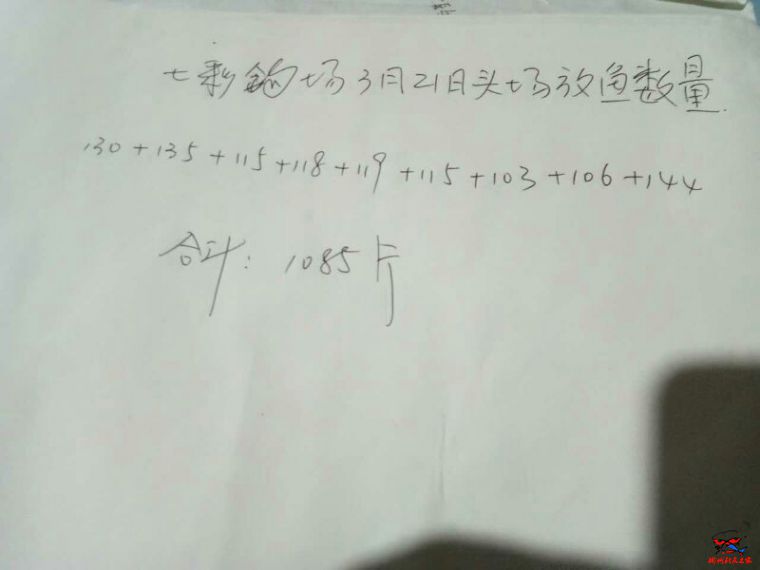 七彩钓场3月21日头场放鱼数量.
130+135+115+118+119+115+103+106+144
合计: 1085片